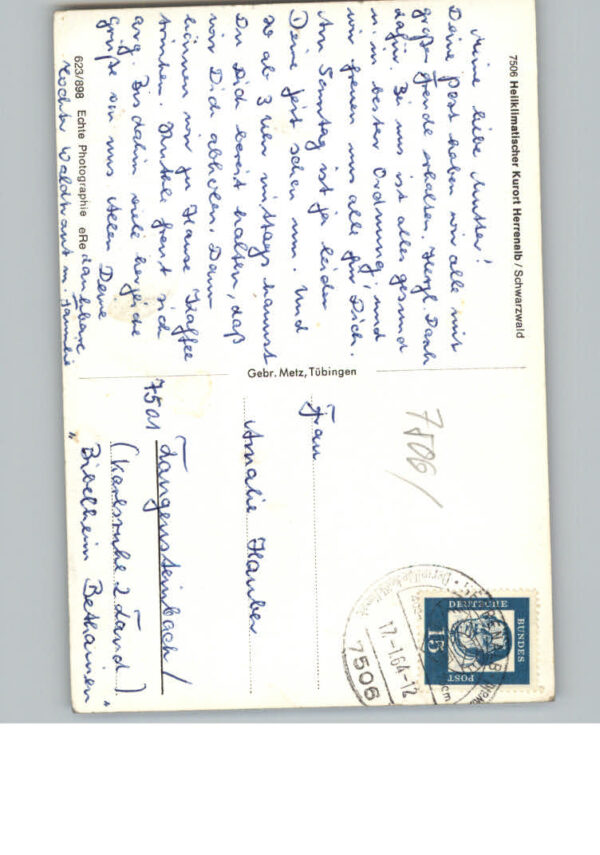 7506 Heilklimatischer Kurort Herrenalb / Schwarzwald
Meine liebe Mutter!
Deine Post haben wir alle mit
großer Freude erhalten, Herzl. Dank
dafür. Bei uns ist alles gesund
u. in bester Ordnung, und
wir freuen uns alle für Dich.
Am Sonntag ist ja leider
Deine Zeit schon um. Und
so ab 3 Uhr mittags kannst
Du Dich bereit halten, daß
wir Dich abholen. Dann
können wir zu Hause Kaffee
trinken. freut sich
arg. Bis dahin viele herzliche
Grüße von uns Allen Deine
dankbare
Tochter Waldtraut m. Familie
623/898 Echte Photographie eRe
Gebr. Metz, Tübingen
7506/
Frau
Amalie Hauber
7501 Langensteinbach/
(Karlsruhe 2 Land)
"Bibelheim Bethanien"
DEUTSCHE
BUNDES
POST
15
HERRENALB
17.-1.64-12
7506